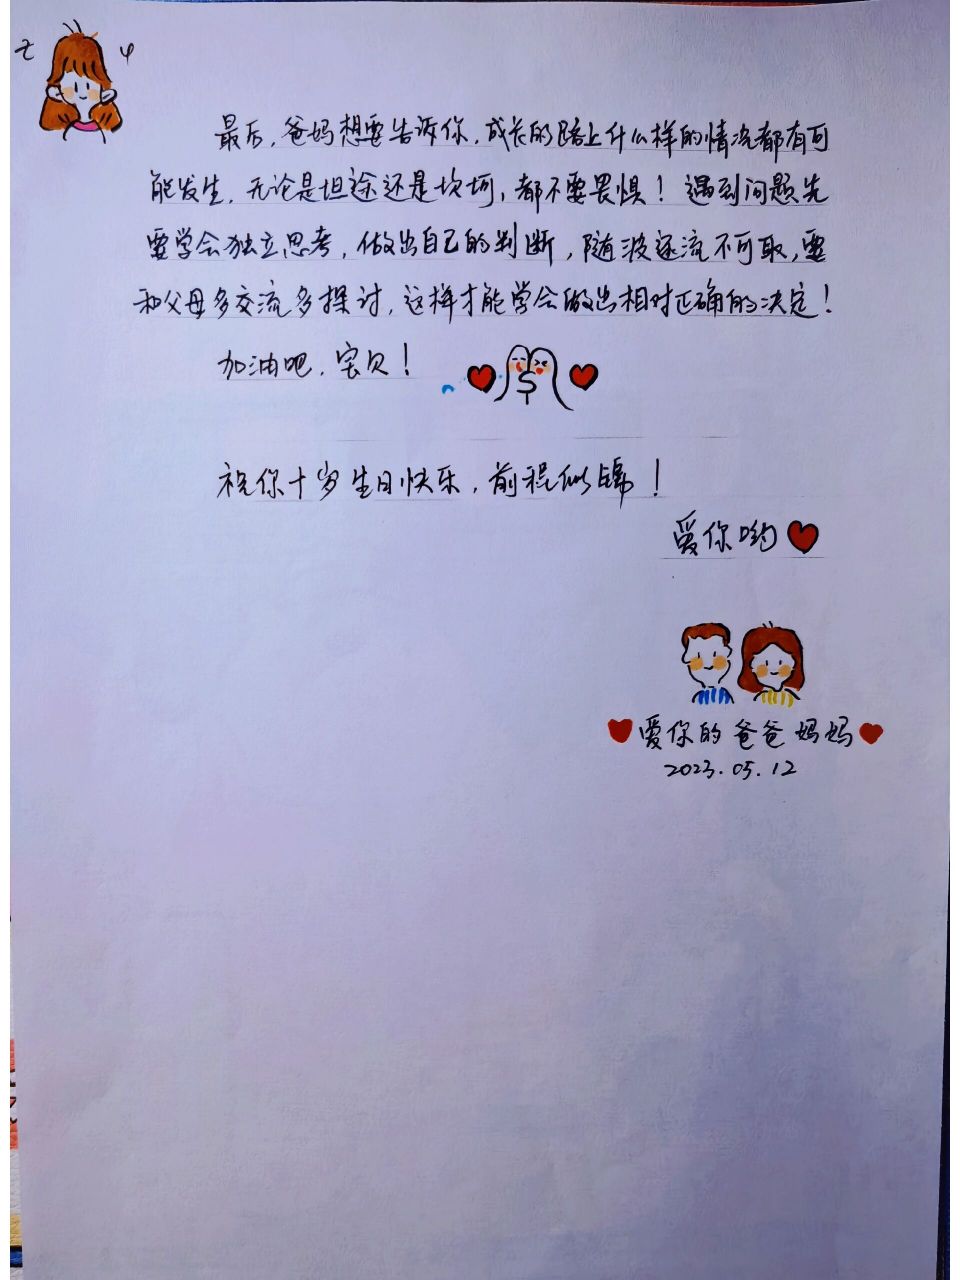 最后，爸妈想要告诉你，成长的路上什么样的情况都有可
能发生，无论是坦途还是坎坷，都不要畏惧！遇到问题先
要学会独立思考，做出自己的判断，随波逐流不可取，要
和父母多交流多探讨，这样才能学会做出相对正确的决定！
加油吧，宝贝！
祝你十岁生日快乐，前程似锦！
爱你哟
爱你的爸爸妈妈
2023.05.12